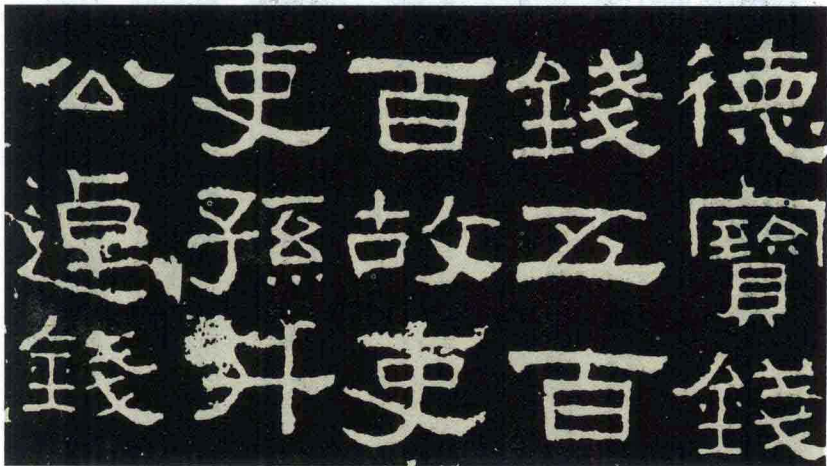 德寶錢
錢五百
百故吏
吏孫升
公逴錢